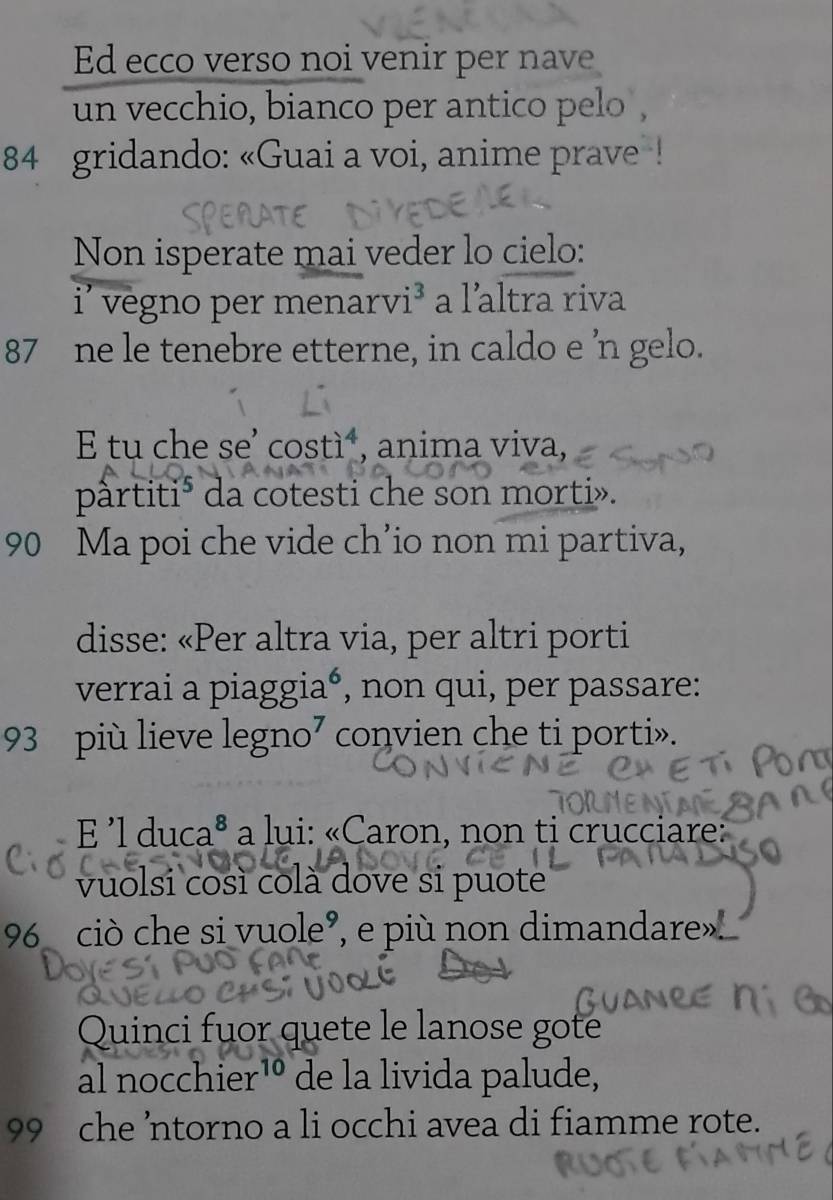 Ed ecco verso noi venir per nave
un vecchio, bianco per antico pelo¹,
84 gridando: «Guai a voi, anime prave²!
SPERATE DI VEDERE
Non isperate mai veder lo cielo:
i’ vegno per menarvi³ a l’altra riva
87 ne le tenebre etterne, in caldo e ’n gelo.
Lì
E tu che se’ costì⁴, anima viva,
ALLONTANATI DA LORO CHE SONO
pàrtiti⁵ da cotesti che son morti».
90 Ma poi che vide ch’io non mi partiva,
disse: «Per altra via, per altri porti
verrai a piaggia⁶, non qui, per passare:
93 più lieve legno⁷ convien che ti porti».
CONVIENE CHE TI
TORMENTARE
E ’l duca⁸ a lui: «Caron, non ti crucciare:
CIÒ CHE SI VUOLE LÀ DOVE CE IL PARADISO
vuolsi così colà dove si puote
96 ciò che si vuole⁹, e più non dimandare».
DOVE SI PUÒ FARE
QUELLO CHSI VUOLE
GUANCE
Quinci fuor quete le lanose gote
A QUESTO PUNTO
al nocchier¹⁰ de la livida palude,
99 che ’ntorno a li occhi avea di fiamme rote.
RUOTE FIAMME